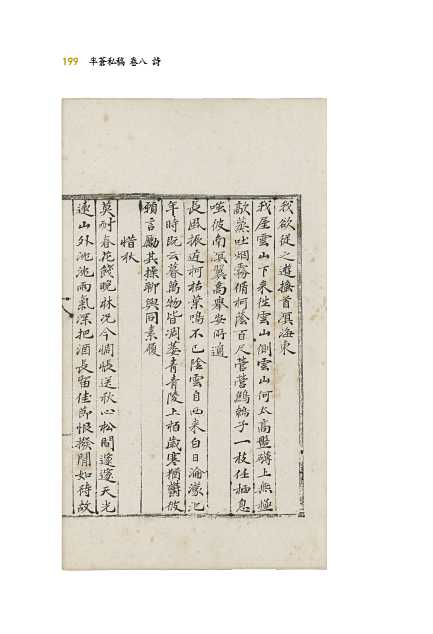 199 半蒼私稿 卷八 詩
我欲從之遊搔首溟海東
我居雲山下來往雲山側雲山何太高盤礴上無極
歊蒸吐烟霧脩柯蔭百尺營營鷦鷯子一枝任栖息
嗤彼南溟翼高擧安所適
長風振近柯枯葉鳴不已陰雲自西來白日淪濛汜
年時旣云暮萬物皆凋萎青青陵上栢歲寒猶欝
願言勵其操聊與同素履
惜秋
莫耐春花餞晩林況今惆悵送秋心松間邃邃天光
遠山外沲沲雨氣深把酒長留佳節恨撥閒如待故